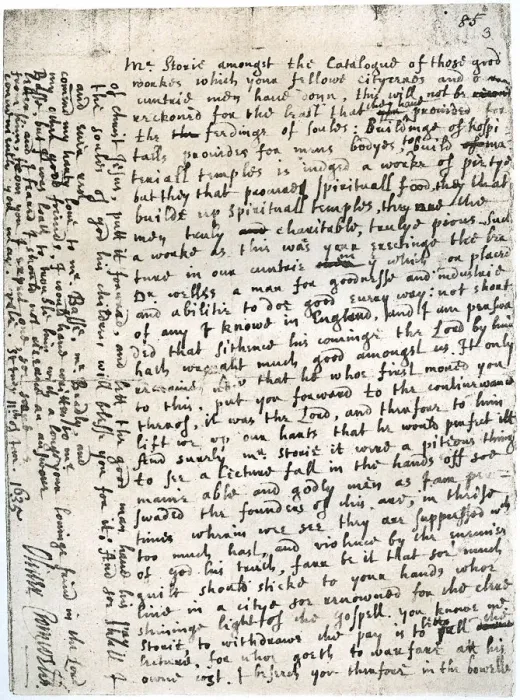 85
3
Mr. Storie amongst the Catalogue of those good
workes which your fellowe citycens and our
cuntrie men have donn, this will not be
reckoned for the least that they have provided for
the the feedinge of soules: Buildinge of hospi
talls provides for mens bodyes, to build
teriall temples is judged a worke of pietye
but they that procure spirituall food, they that
builde up spirituall temples, they are the
men truly charitable, trulye pious. Such
a worke as this was your erectinge the lec
ture in our cuntrie in which you placed
Dr wellss a man for goodnesse and industrie
and abilitie to doe good every way: not short
of any I knowe in England, and I am perswa
ded that sithence his cominge the Lord by him
hath wrought much good amongst us. It only
that he whoe first moved you
to this, put you forward to the continuewance
therof, it was the Lord, and therfore to him
lift we up our harts that he would perfect itt
And surely Mr Storie it were a piteous thinge
to see a lecture fall in the hands off soe
manie able and godly men as I am per
swaded the founders of this are, in theise
times wherein wee see they are suppressed with
too much hast, and violence by the enemies
of god his truth, farr be it that soe much
guilt should sticke to your hands, whoe
live in a citye soe renowned for the clere
shininge light of the gospell. you knowe Mr
Storie to withdrawe the pay is to lett fall the
lecture, for whoe goeth to warfare att his
owne cost. I beseech you therfore in the bowells
of christ Jesus, putt it forward, and lett the good man have his
the soules of god his children will bless you for it: And soe shall I
and ever rest
Your lovinge friend in the Lord
Oliver Cromwell
comend my hearty love to mr Basse, mr Beadly, and
my other good friends, I would have written to mr
Basse, but I was loath to trouble him with a longe
letter, and I feared I should not receive an answere
from him, from you I expect one soe soone as
convenientlie you may. vale. St Ives 11th of Jan 1635